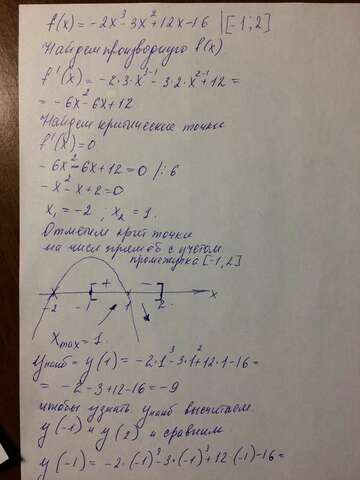 f(x) = -2x³-3x²+12x-16 | [-1;2]
Найдем производную f'(x).
f'(x) = -2·3·x³⁻¹-3·2·x²⁻¹+12 =
= -6x²-6x+12
Найдем критические точки
f'(x)=0
-6x²-6x+12=0 /:6
-x²-x+2=0
x₁=-2 ; x₂=1.
Отметим крит точки
на числ прямой с учетом.
промежутка [-1;2]
+ -
-2 -1 1 2 x
Xmax=1.
Yнаиб = y(1) = -2·1³-3·1²+12·1-16=
= -2-3+12-16=-9
чтобы узнать yнаиб высчитаем
y(-1) и y(2) и сравним
y(-1) = -2·(-1)³-3·(-1)³+12·(-1)-16=